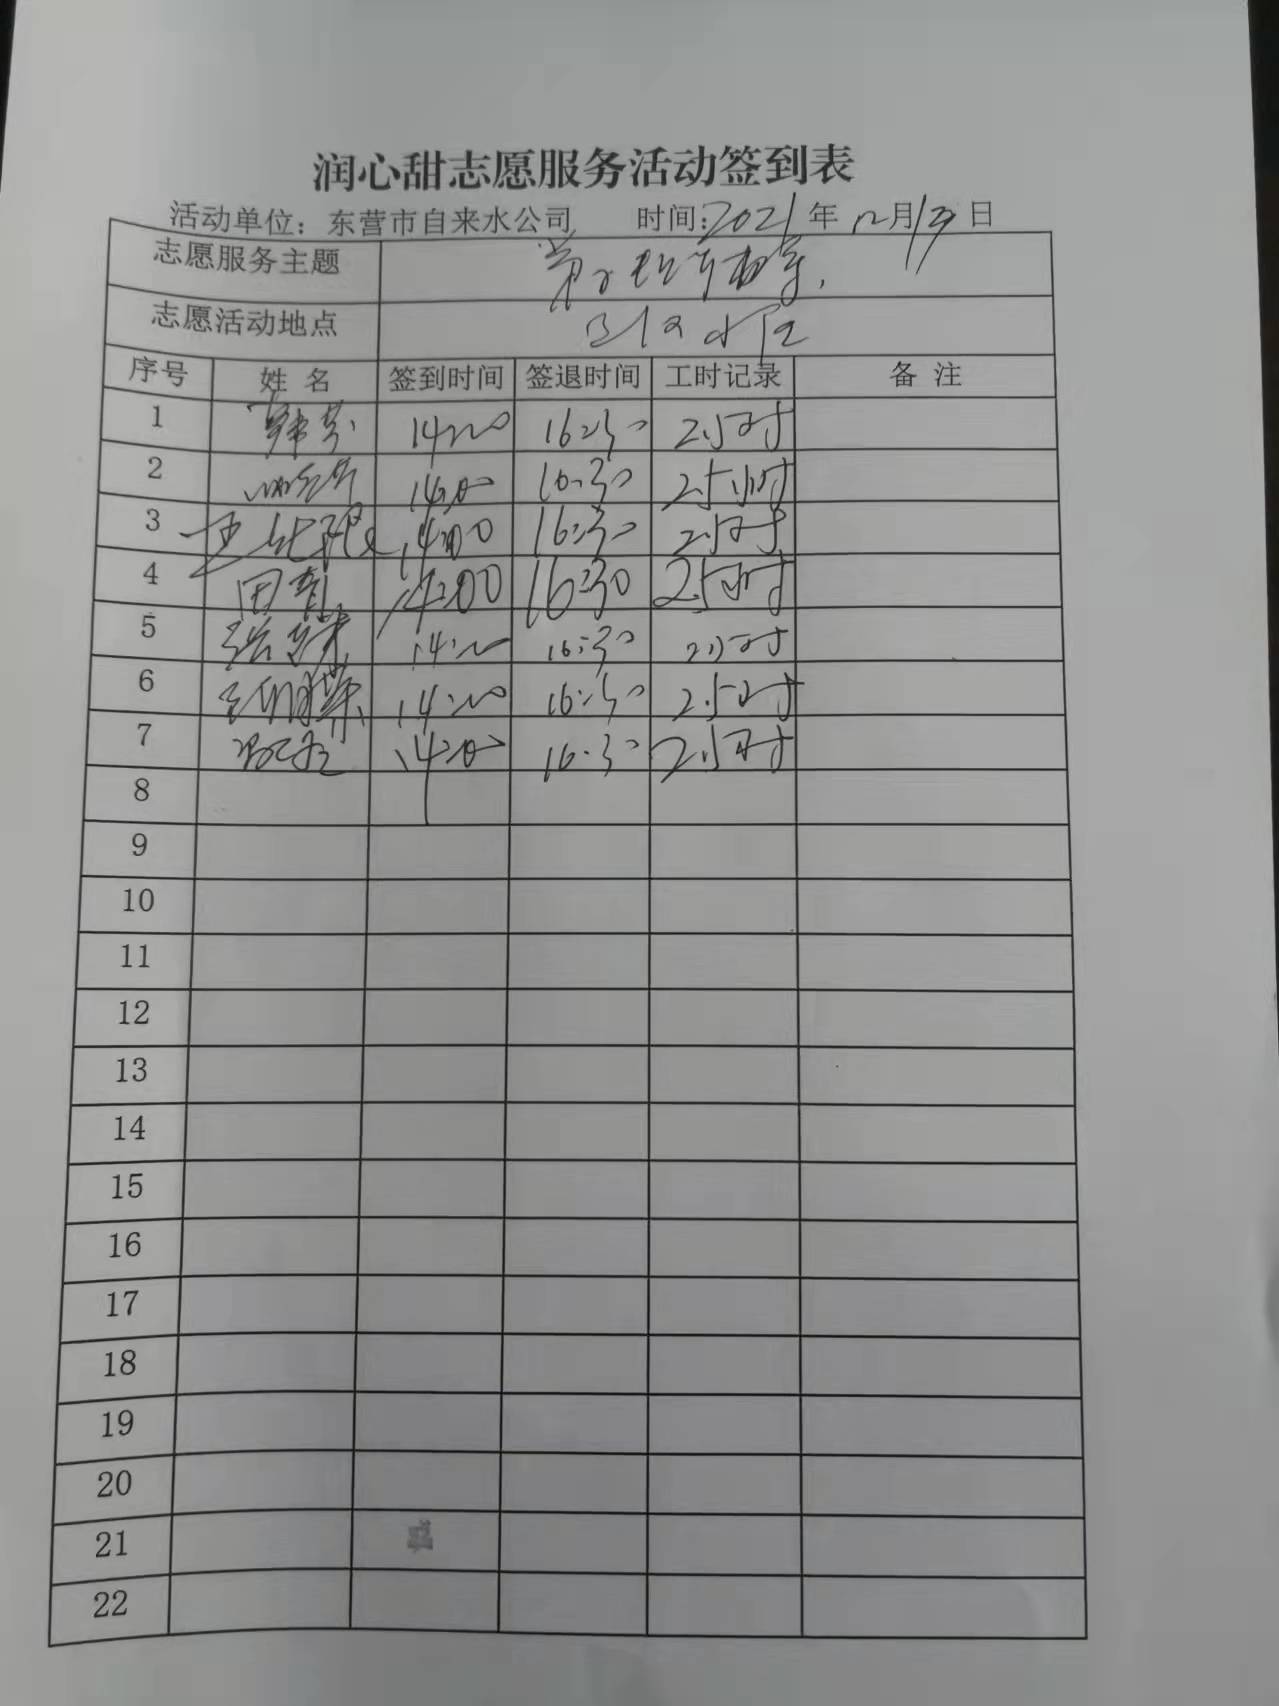 润心甜志愿服务活动签到表
活动单位：东营市自来水公司 时间：2021年12月19日
志愿服务主题
志愿活动地点 小区
序号 姓名 签到时间 签退时间 工时记录 备注
1 14:00 16:30 2.5小时
2 14:00 16:30 2.5小时
3 14:00 16:30 2.5小时
4 田 14:00 16:30 2.5小时
5 14:00 16:30 2.5小时
6 14:00 16:30 2.5小时
7 14:00 16:30 2.5小时
8
9
10
11
12
13
14
15
16
17
18
19
20
21
22